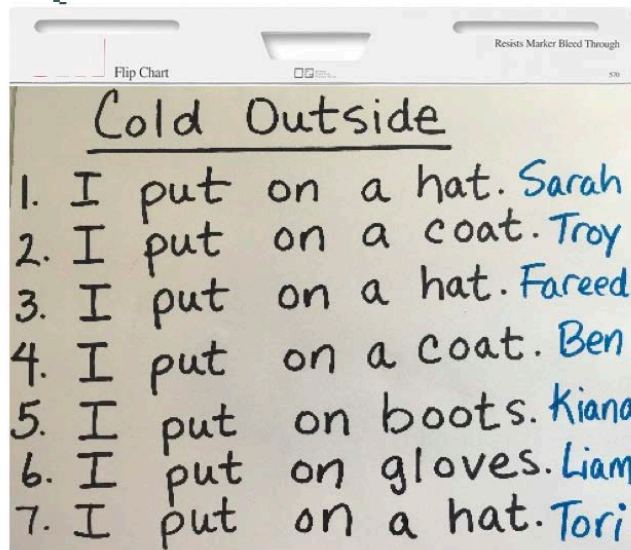 Resists Marker Bleed Through
Flip Chart
570
Cold Outside
1. I put on a hat. Sarah
2. I put on a coat. Troy
3. I put on a hat. Fareed
4. I put on a coat. Ben
5. I put on boots. Kiana
6. I put on gloves. Liam
7. I put on a hat. Tori